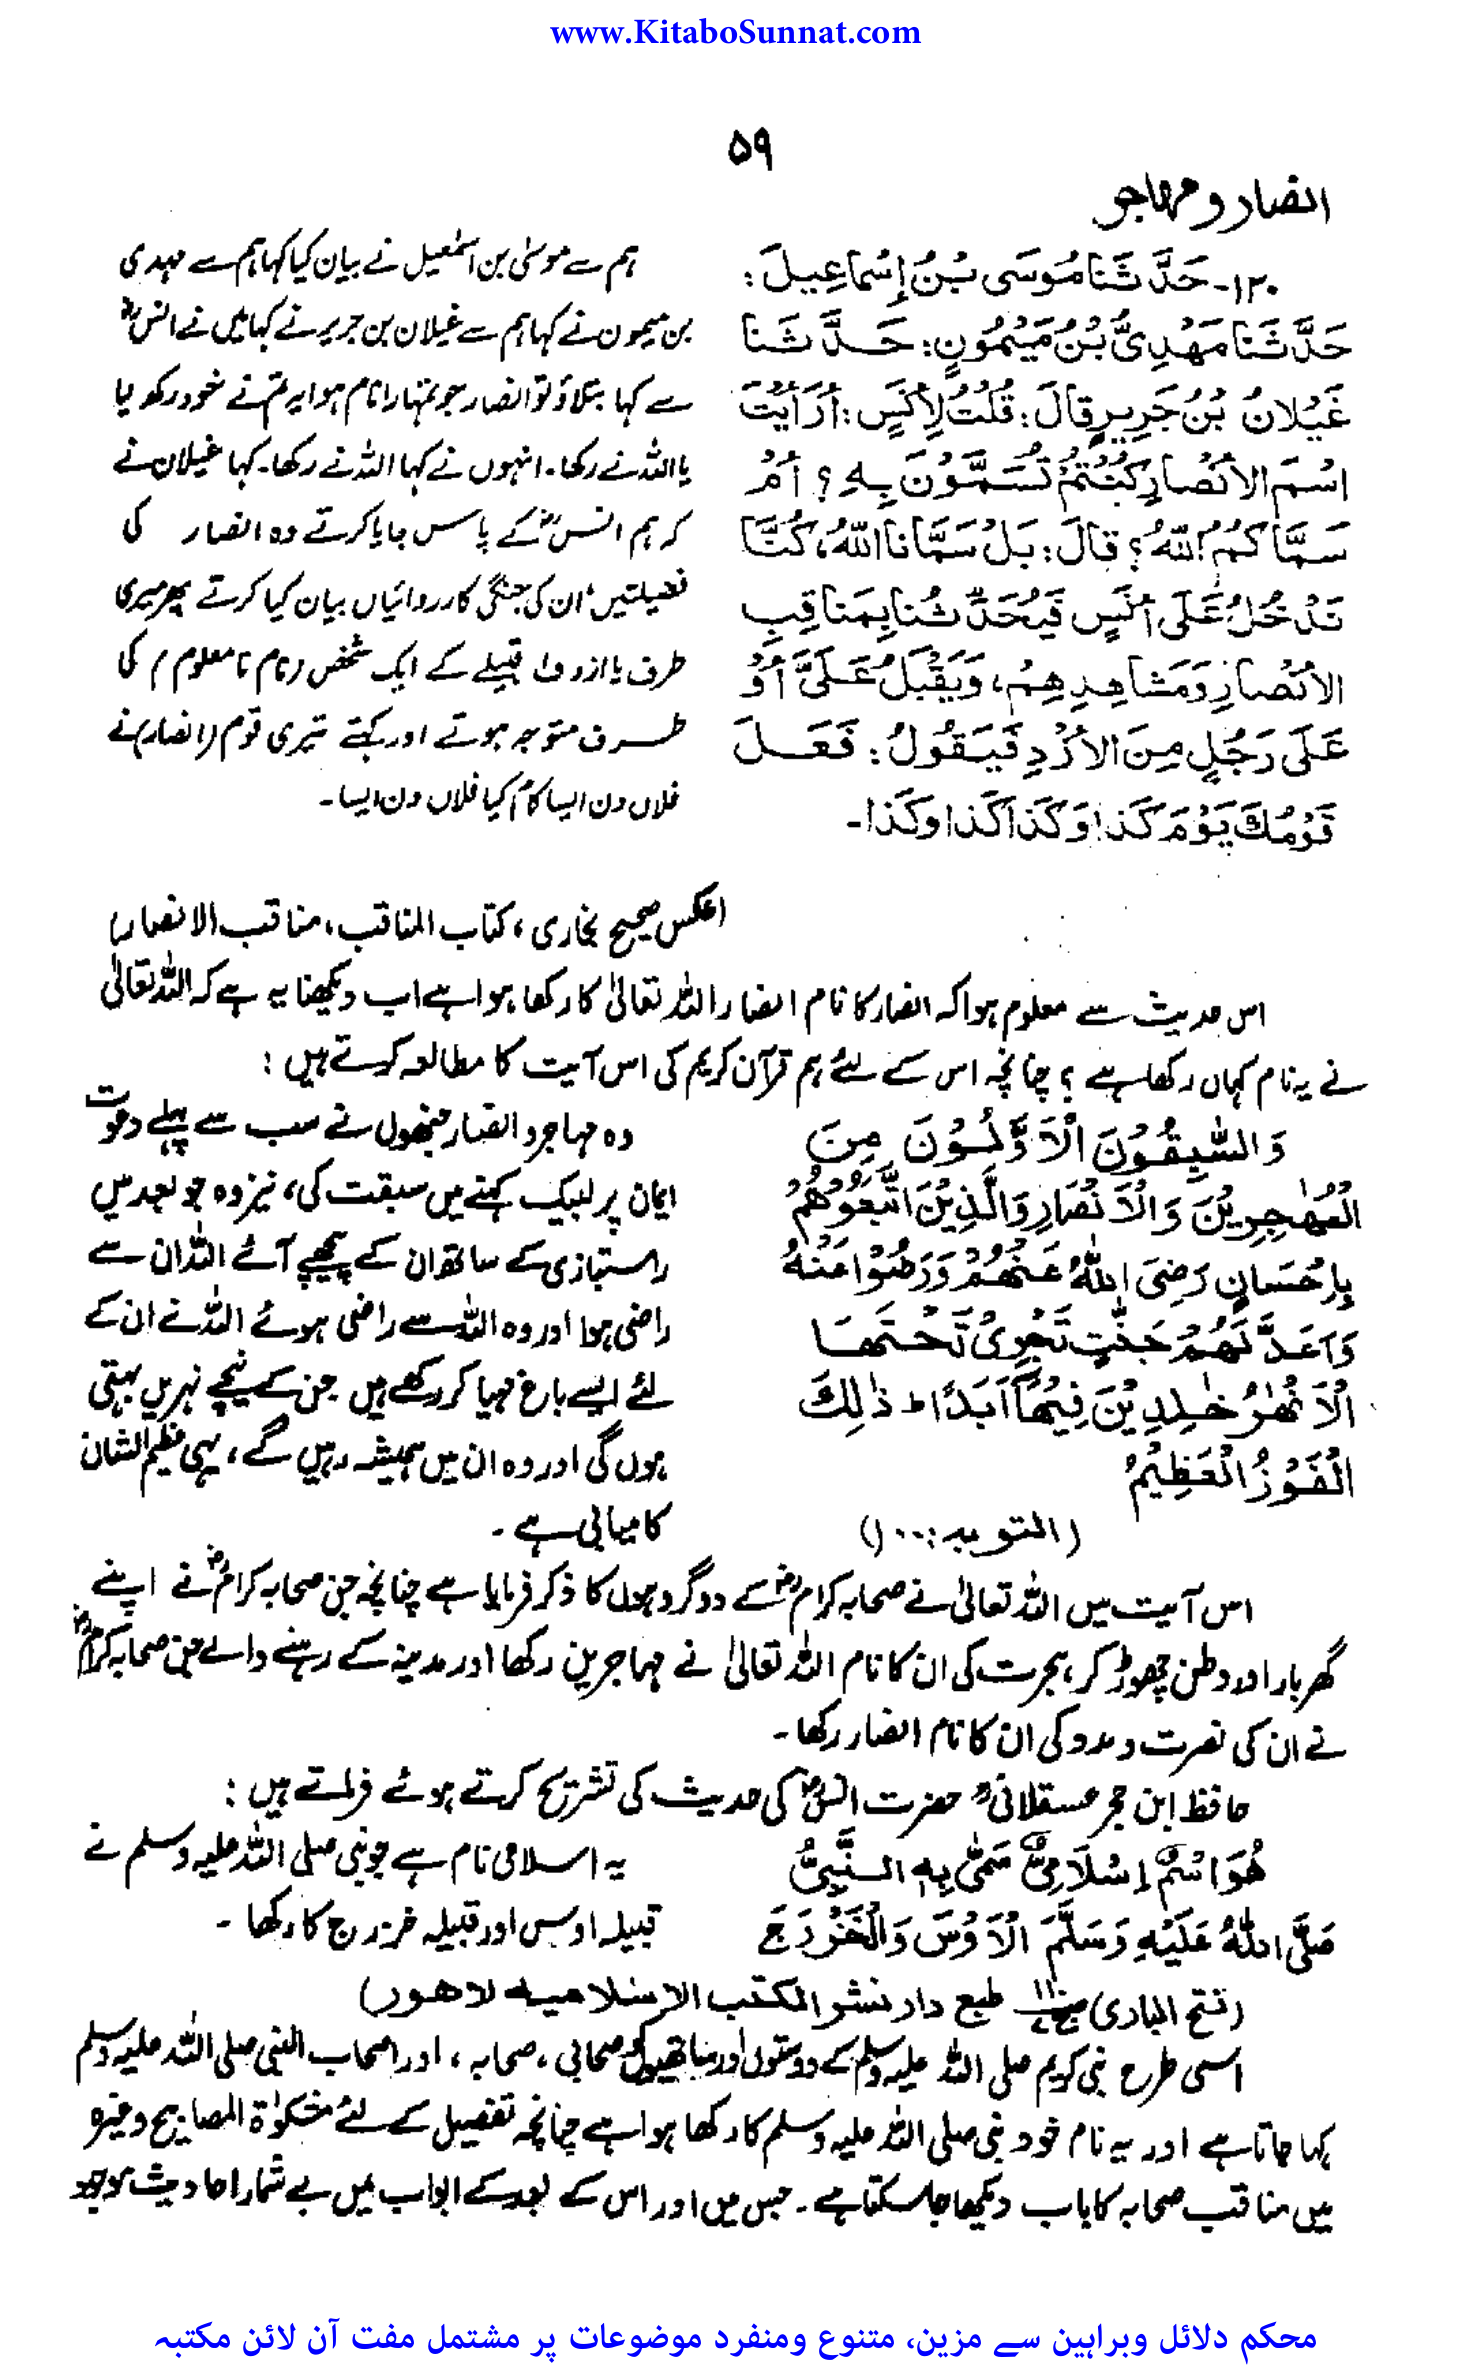 www.KitaboSunnat.com
۵۹
انصار و مہاجر
۱۲۰- حَدَّثَنَا مُوسَى بْنُ إِسْمَاعِيلَ:
حَدَّثَنَا مَهْدِيُّ بْنُ مَيْمُونٍ: حَدَّثَنَا
غَيْلانُ بْنُ جَرِيرٍ قالَ: قُلْتُ لِأَنَسٍ: أَرَأَيْتَ
اسْمَ الأَنْصارِ كُنْتُمْ تُسَمَّوْنَ بِهِ؟ أَمْ
سَمَّاكُمُ اللهُ؟ قالَ: بَلْ سَمَّانا اللهُ، كُنَّا
نَدْخُلُ عَلَى أَنَسٍ فَيُحَدِّثُنا بِمَناقِبِ
الأَنْصارِ وَمَشاهِدِهِمْ، وَيُقْبِلُ عَلَيَّ أَوْ
عَلَى رَجُلٍ مِنَ الأَزْدِ فَيَقُولُ: فَعَلَ
قَوْمُكَ يَوْمَ كَذا وَكَذا كَذا وَكَذا۔
ہم سے موسیٰ بن اسمٰعیل نے بیان کیا کہا ہم سے مہدی
بن میمون نے کہا ہم سے غیلان بن جریر نے کہا میں نے انسؓ
سے کہا بتلاؤ تو انصار جو تمہارا نام ہوا یہ تم نے خود رکھ لیا
یا اللہ نے رکھا۔ انہوں نے کہا اللہ نے رکھا۔ کہا غیلان نے
کہ ہم انسؓ کے پاس جایا کرتے وہ انصار کی
فضیلتیں، ان کی جنگی کارروائیاں بیان کیا کرتے پھر میری
طرف یا ازد قبیلے کے ایک شخص (نام نامعلوم) کی
طرف متوجہ ہوتے اور کہتے تیری قوم (انصار) نے
فلاں دن ایسا کام کیا فلاں دن ایسا۔
(عکس صحیح بخاری، کتاب المناقب، مناقب الانصار)
اس حدیث سے معلوم ہوا کہ انصار کا نام انصار اللہ تعالیٰ کا رکھا ہوا ہے اب دیکھنا یہ ہے کہ اللہ تعالیٰ
نے یہ نام کہاں رکھا ہے؟ چنانچہ اس کے لئے ہم قرآن کریم کی اس آیت کا مطالعہ کرتے ہیں:
وَالسّٰبِقُوْنَ الْاَوَّلُوْنَ مِنَ
الْمُهٰجِرِيْنَ وَالْاَنْصَارِ وَالَّذِيْنَ اتَّبَعُوْهُمْ
بِاِحْسَانٍ رَضِيَ اللهُ عَنْهُمْ وَرَضُوْا عَنْهُ
وَاَعَدَّ لَهُمْ جَنّٰتٍ تَجْرِيْ تَحْتَهَا
الْاَنْهٰرُ خٰلِدِيْنَ فِيْهَآ اَبَدًا ط ذٰلِكَ
الْفَوْزُ الْعَظِيْمُ
(التوبہ:۱۰۰)
وہ مہاجر و انصار جنھوں نے سب سے پہلے دعوت
ایمان پر لبیک کہنے میں سبقت کی، نیز وہ جو بعد میں
راستبازی کے ساتھ ان کے پیچھے آئے اللہ ان سے
راضی ہوا اور وہ اللہ سے راضی ہوئے اللہ نے ان کے
لئے ایسے باغ مہیا کر رکھے ہیں جن کے نیچے نہریں بہتی
ہوں گی اور وہ ان میں ہمیشہ رہیں گے، یہی عظیم الشان
کامیابی ہے۔
اس آیت میں اللہ تعالیٰ نے صحابہ کرامؓ کے دو گروہوں کا ذکر فرمایا ہے چنانچہ جن صحابہ کرامؓ نے اپنے
گھر بار اور وطن چھوڑ کر ہجرت کی ان کا نام اللہ تعالیٰ نے مہاجرین رکھا اور مدینہ کے رہنے والے جن صحابہ کرامؓ
نے ان کی نصرت و مدد کی ان کا نام انصار رکھا۔
حافظ ابن حجر عسقلانیؒ حضرت انسؓ کی حدیث کی تشریح کرتے ہوئے فرماتے ہیں:
هُوَ اسْمٌ اِسْلَامِيٌّ سَمّٰى بِهِ النَّبِيُّ
صَلَّى اللهُ عَلَيْهِ وَسَلَّمَ الْاَوْسَ وَالْخَزْرَجَ
یہ اسلامی نام ہے جو نبی صلی اللہ علیہ وسلم نے
قبیلہ اوس اور قبیلہ خزرج کا رکھا۔
(فتح الباری طبع دار نشر الکتب الاسلامیہ لاہور)
اسی طرح نبی کریم صلی اللہ علیہ وسلم کے دوستوں اور ساتھیوں کو صحابی، صحابہ، اور اصحاب النبی صلی اللہ علیہ وسلم
کہا جاتا ہے اور یہ نام خود نبی صلی اللہ علیہ وسلم کا رکھا ہوا ہے چنانچہ تفصیل کے لئے مشکوٰۃ المصابیح وغیرہ
میں مناقب صحابہ کا باب دیکھا جا سکتا ہے۔ جس میں اور اس کے بعد کے ابواب میں بے شمار احادیث موجود
محکم دلائل وبراہین سے مزین، متنوع ومنفرد موضوعات پر مشتمل مفت آن لائن مکتبہ